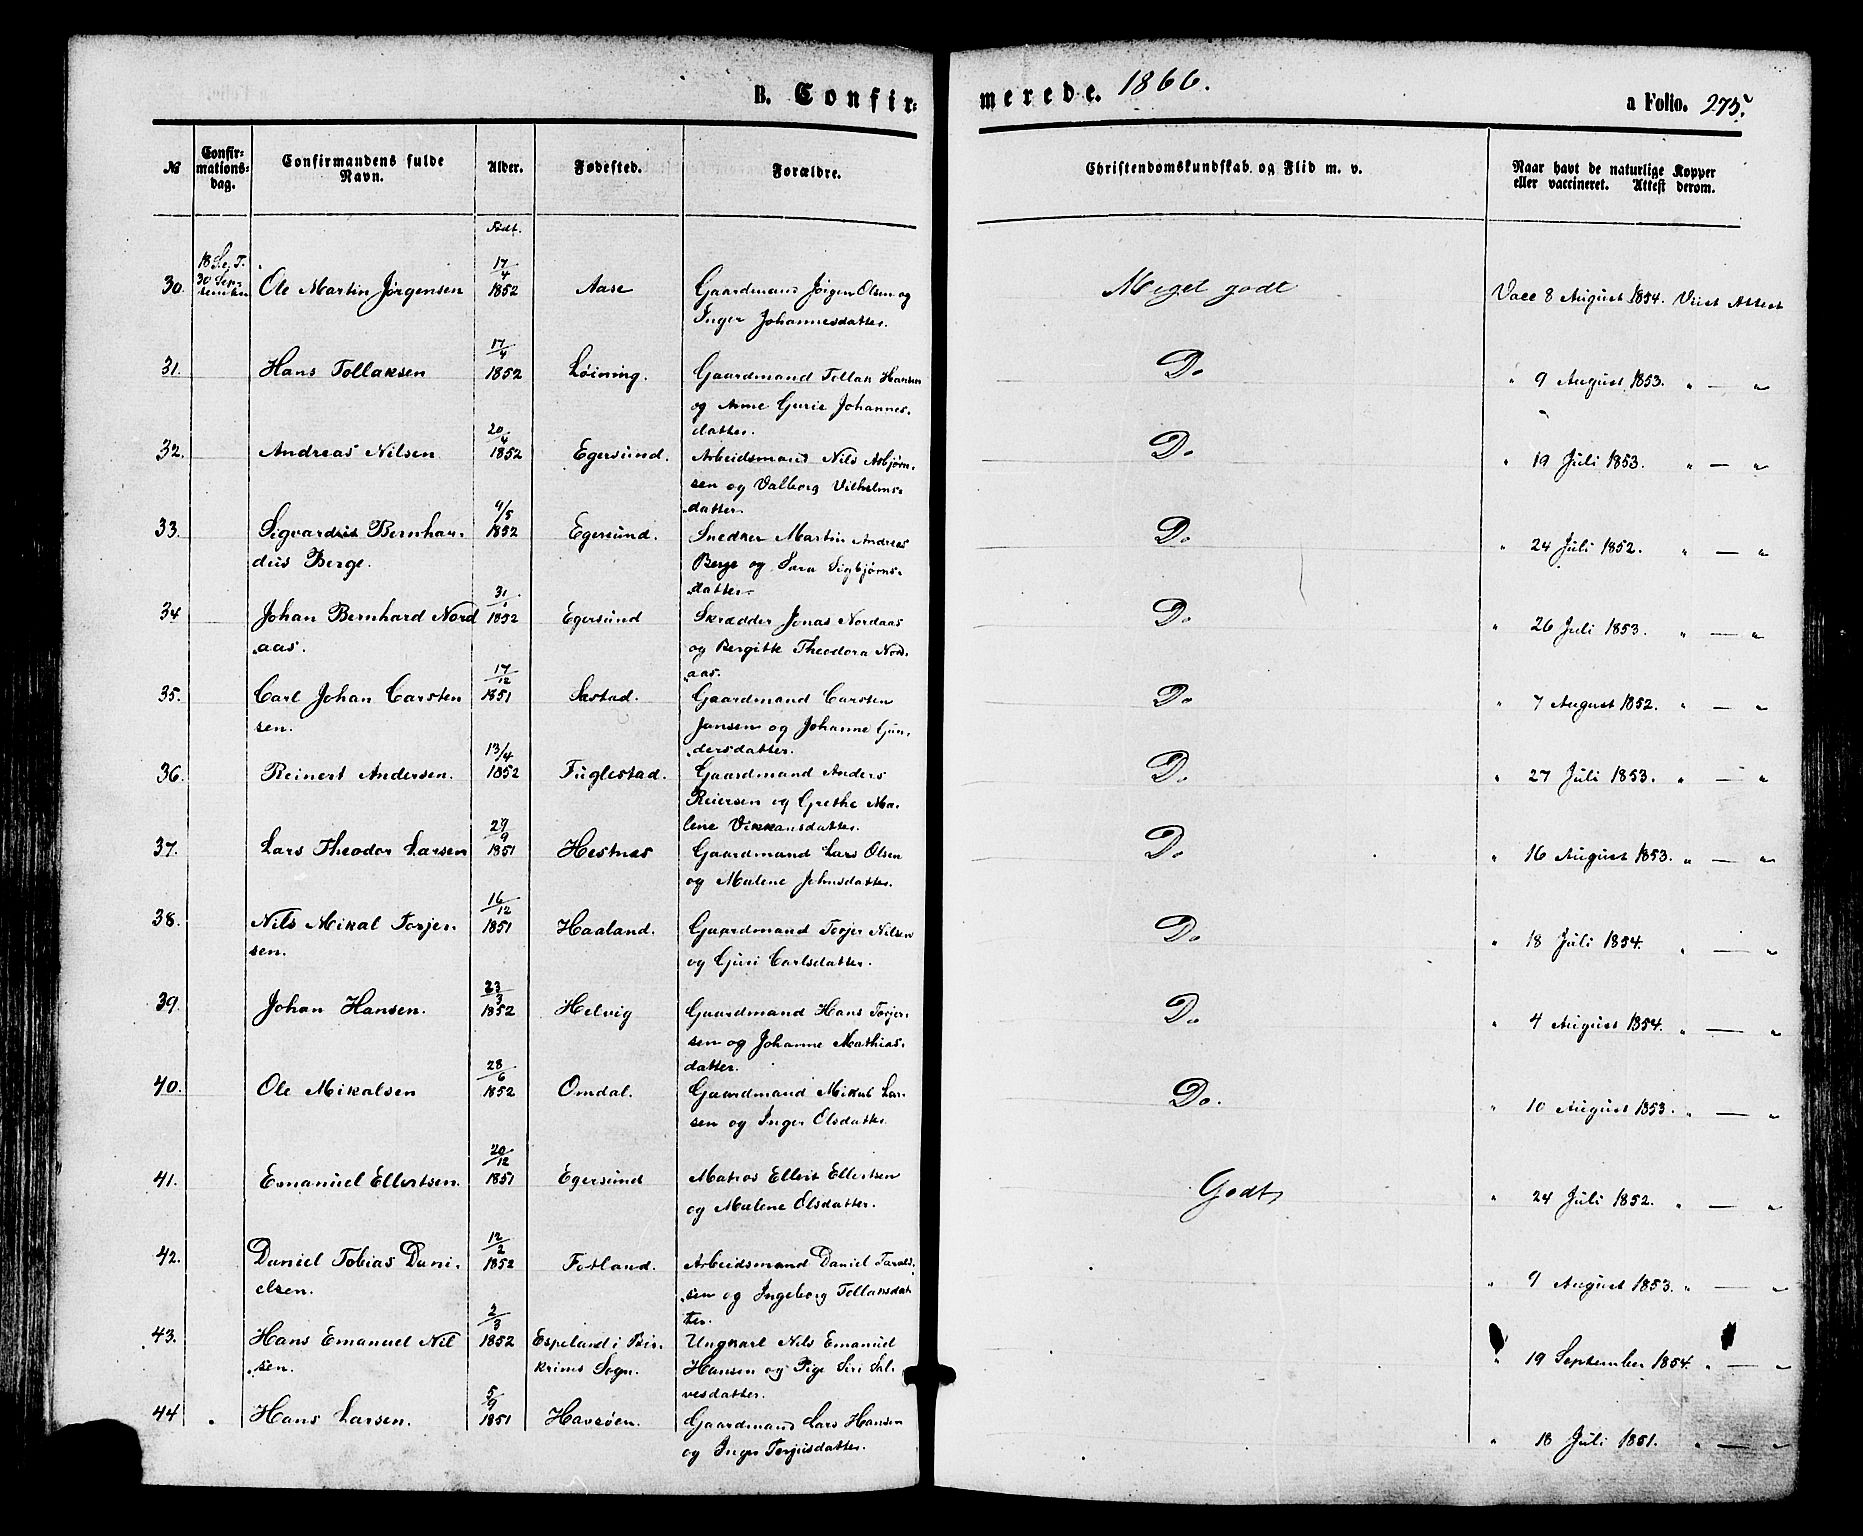 B. Confir-merede. 1866. a Folio. 275.
№ Confir-mations-dag. Confirmandens fulde Navn. Alder. Fødested. Forældre. Christendomskundskab og Flid m. v. Naar havt de naturlige Kopper eller vaccineret. Attest derom.
Født.
30. 18 S. e. T. 30 September Ole Martin Jørgensen 17/4 1852 Aase Gaardmand Jørgen Olsen og Meget godt Vacc 8 August 1854. Viist Attest
Inger Johannesdatter.
31. Hans Tollaksen 17/4 1852 Løining. Gaardmand Tollak Hansen Do " 9 August 1853. " — "
og Anne Gurie Johannes-
datter.
32. Andreas Nilsen 20/4 1852 Egersund. Arbeidsmand Nils Asbjørn- Do " 19 Juli 1853. " — "
sen og Valborg Vilhelms-
datter.
33. Sigvardus Bernhar- 9/5 1852 Egersund. Snedker Martin Andreas Do " 24 Juli 1852. " — "
dus Berge. Berge og Sara Sigbjørns-
datter.
34 Johan Bernhard Nord 31/1 1852 Egersund Skrædder Jonas Nordaas Do " 26 Juli 1853. " — "
aas. og Bergitte Theodora Nord-
aas.
35. Carl Johan Carsten 17/12 1851 Sæstad. Gaardmand Carsten Do " 7 August 1852. " — "
sen. Jansen og Johanne Gun-
dersdatter.
36. Reinert Andersen. 13/4 1852 Fuglestad. Gaardmand Anders Do " 27 Juli 1853. " — "
Reiersen og Grethe Ma-
lene Vikkansdatter.
37. Lars Theodor Larsen 29/9 1851 Hestnes Gaardmand Lars Olsen Do " 16 August 1853. " — "
og Malene Johnsdatter.
38. Nils Mikal Torjer- 16/12 1851 Haaland. Gaardmand Torjer Nilsen Do " 18 Juli 1854. " — "
sen. og Guri Carlsdatter.
39. Johan Hansen. 23/3 1852 Helvig Gaardmand Hans Torjer- Do " 4 August 1854. " — "
sen og Johanne Mathias-
datter.
40. Ole Mikalsen 28/6 1852 Omdal. Gaardmand Mikal Lar- Do. " 10 August 1853. " — "
sen og Inger Olsdatter.
41. Emanuel Ellertsen. 20/12 1851 Egersund Matros Ellert Ellertsen Godt " 24 Juli 1852. " — "
og Malene Olsdatter.
42. Daniel Tobias Dani- 12/2 1852 Fotland. Arbeidsmand Daniel Tarald- " 9 August 1853. " — "
elsen. sen og Ingeborg Tollaksdat
ter.
43. Hans Emanuel Nil 2/3 1852 Espeland i Bir- Ungkarl Nils Emanuel " 19 September 1854. " — "
sen. krims Sogn. Hansen og Pige Siri Sal-
vesdatter.
44 Hans Larsen. 5/9 1851 Havsøen. Gaardmand Lars Hansen " 18 Juli 1851. " — "
og Inger Torjusdatter.